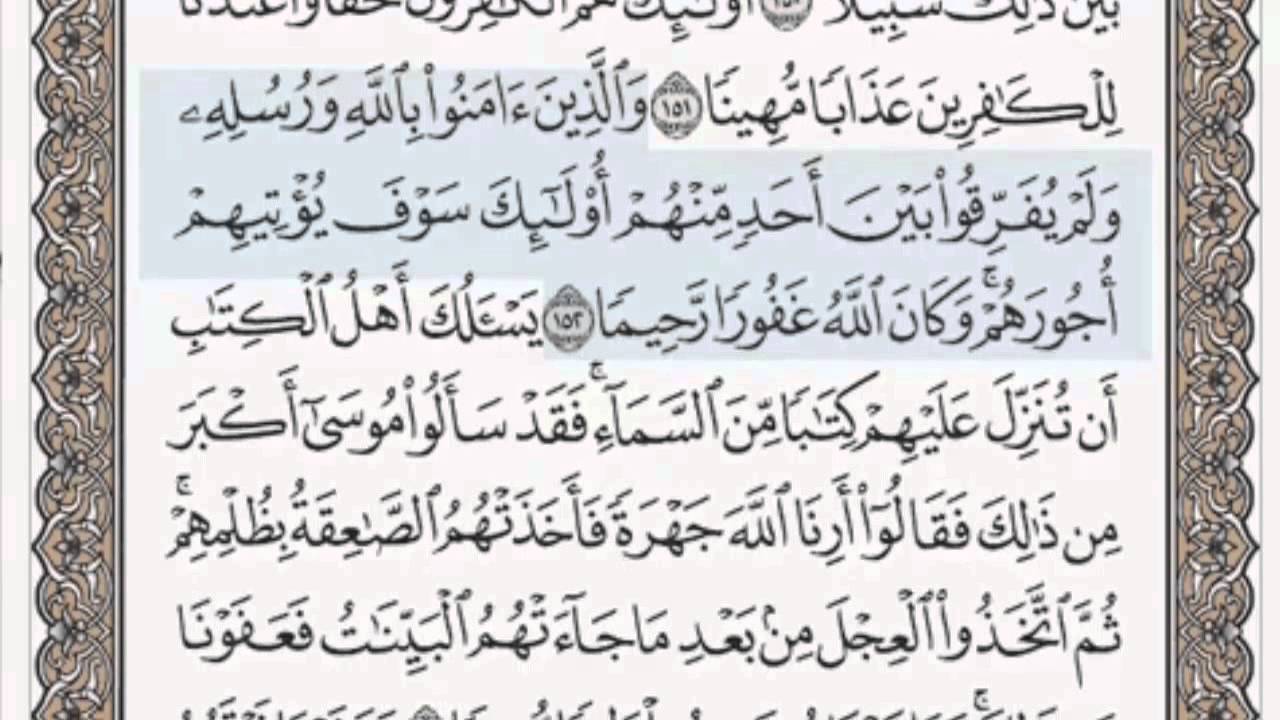 بَيْنَ ذَٰلِكَ سَبِيلًا ١٥٠ أُو۟لَـٰٓئِكَ هُمُ ٱلْكَـٰفِرُونَ حَقًّا وَأَعْتَدْنَا
لِلْكَـٰفِرِينَ عَذَابًا مُّهِينًا ١٥١ وَٱلَّذِينَ ءَامَنُوا۟ بِٱللَّهِ وَرُسُلِهِۦ
وَلَمْ يُفَرِّقُوا۟ بَيْنَ أَحَدٍ مِّنْهُمْ أُو۟لَـٰٓئِكَ سَوْفَ يُؤْتِيهِمْ
أُجُورَهُمْ ۗ وَكَانَ ٱللَّهُ غَفُورًا رَّحِيمًا ١٥٢ يَسْـَٔلُكَ أَهْلُ ٱلْكِتَـٰبِ
أَن تُنَزِّلَ عَلَيْهِمْ كِتَـٰبًا مِّنَ ٱلسَّمَآءِ ۚ فَقَدْ سَأَلُوا۟ مُوسَىٰٓ أَكْبَرَ
مِن ذَٰلِكَ فَقَالُوٓا۟ أَرِنَا ٱللَّهَ جَهْرَةً فَأَخَذَتْهُمُ ٱلصَّـٰعِقَةُ بِظُلْمِهِمْ ۚ
ثُمَّ ٱتَّخَذُوا۟ ٱلْعِجْلَ مِنۢ بَعْدِ مَا جَآءَتْهُمُ ٱلْبَيِّنَـٰتُ فَعَفَوْنَا